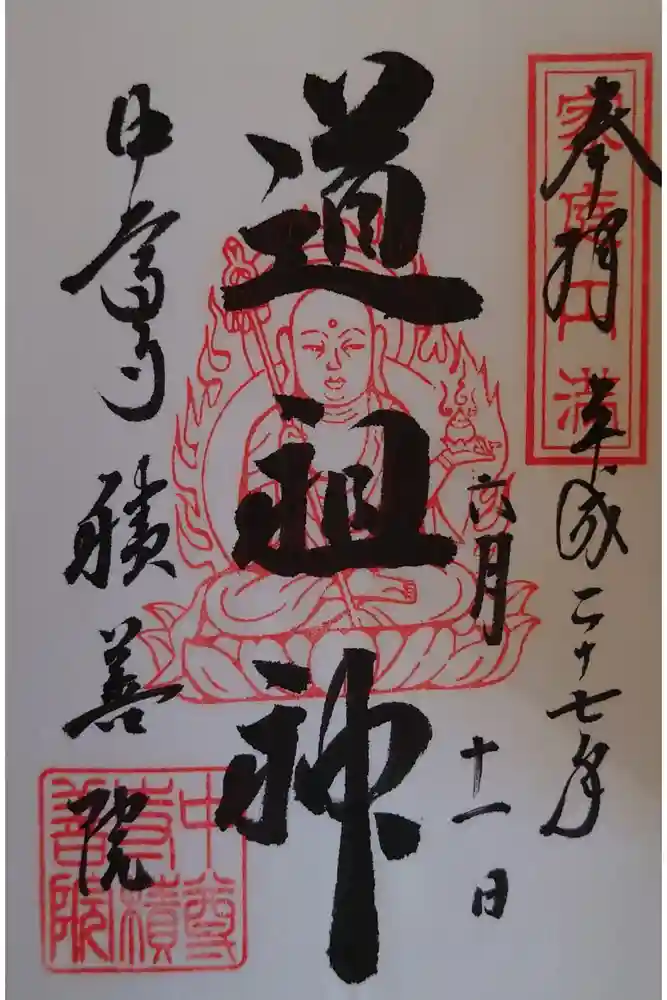 奉拝
家庭円満
平成二十七年
六月
十一日
道祖神
中尊寺
積善院
中尊
寺積
善院